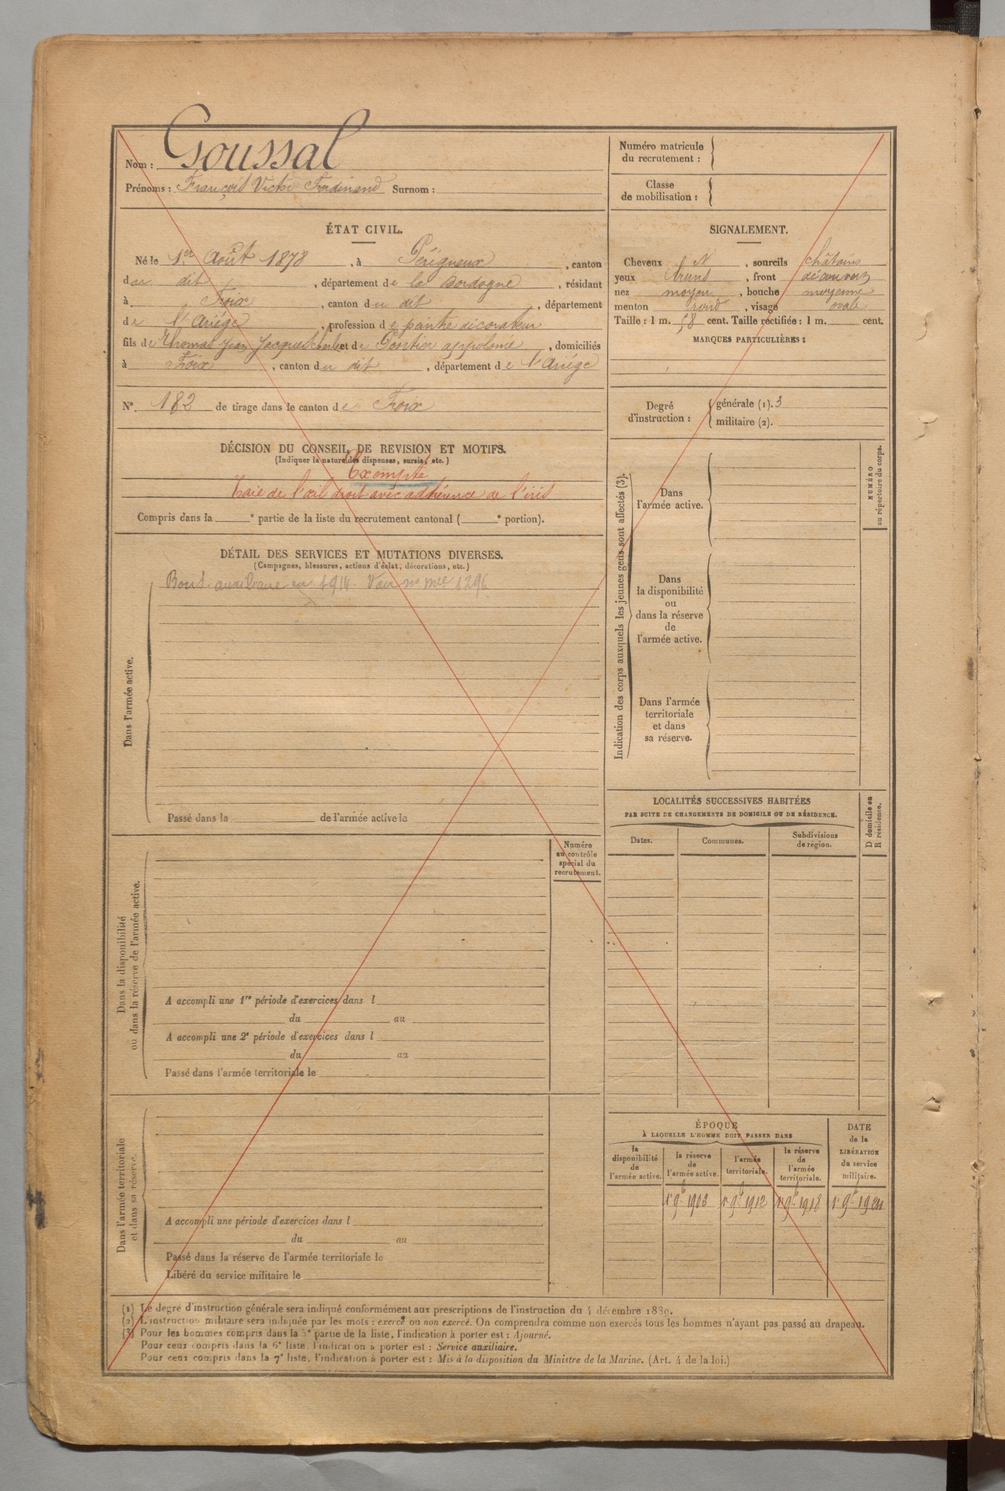 Nom : Goussal
Prénoms : François Victor Ferdinand Surnom :
Numéro matricule
du recrutement :
Classe
de mobilisation :
ÉTAT CIVIL.
Né le 1er Août 1878, à Périgueux, canton
du dit, département de la Dordogne, résidant
à Foix, canton du dit, département
de l'Ariège, profession de peintre décorateur
fils de Thomas Jean Jacques Charles et de Gontier appolonie, domiciliés
à Foix, canton du dit, département de l'Ariège
N° 182 de tirage dans le canton de Foix
SIGNALEMENT.
Cheveux N, sourcils châtains
yeux bruns, front découvert
nez moyen, bouche moyenne
menton rond, visage ovale
Taille : 1 m. 58 cent. Taille rectifiée : 1 m. cent.
MARQUES PARTICULIÈRES :
Degré
d'instruction :
générale (1). 3
militaire (2).
DÉCISION DU CONSEIL DE REVISION ET MOTIFS.
(Indiquer la nature des dispenses, sursis, etc.)
Exempté
Taie de l'œil droit avec adhérence de l'iris
Compris dans la e partie de la liste du recrutement cantonal ( e portion).
DÉTAIL DES SERVICES ET MUTATIONS DIVERSES.
(Campagnes, blessures, actions d'éclat, décorations, etc.)
Bon s. auxiliaire en 1914. Voir n° mle 1296
Dans l'armée active.
Passé dans la de l'armée active le
Indication des corps auxquels les jeunes gens sont affectés (3).
Dans
l'armée active.
Dans
la disponibilité
ou
dans la réserve
de
l'armée active.
Dans l'armée
territoriale
et dans
sa réserve.
NUMÉRO
au répertoire du corps.
LOCALITÉS SUCCESSIVES HABITÉES
PAR SUITE DE CHANGEMENTS DE DOMICILE OU DE RÉSIDENCE.
Dates. Communes. Subdivisions
de région.
D domicile ou
R résidence.
Numéro
au contrôle
spécial du
recrutement.
Dans la disponibilité
ou dans la réserve de l'armée active.
A accompli une 1re période d'exercices dans l
du au
A accompli une 2e période d'exercices dans l
du au
Passé dans l'armée territoriale le
Dans l'armée territoriale
et dans sa réserve.
A accompli une période d'exercices dans l
du au
Passé dans la réserve de l'armée territoriale le
Libéré du service militaire le
ÉPOQUE
À LAQUELLE L'HOMME DOIT PASSER DANS
la
disponibilité
de
l'armée active.
la réserve
de
l'armée active.
l'armée
territoriale.
la réserve
de
l'armée
territoriale.
DATE
de la
LIBÉRATION
du service
militaire.
1er 9bre 1912 1er 9bre 1918
(1) Le degré d'instruction générale sera indiqué conformément aux prescriptions de l'instruction du 4 décembre 1889.
(2) L'instruction militaire sera indiquée par les mots : exercé ou non exercé. On comprendra comme non exercés tous les hommes n'ayant pas passé au drapeau.
(3) Pour les hommes compris dans la 5e partie de la liste, l'indication à porter est : Ajourné.
Pour ceux compris dans la 6e liste, l'indication à porter est : Service auxiliaire.
Pour ceux compris dans la 7e liste, l'indication à porter est : Mis à la disposition du Ministre de la Marine. (Art. 4 de la loi.)